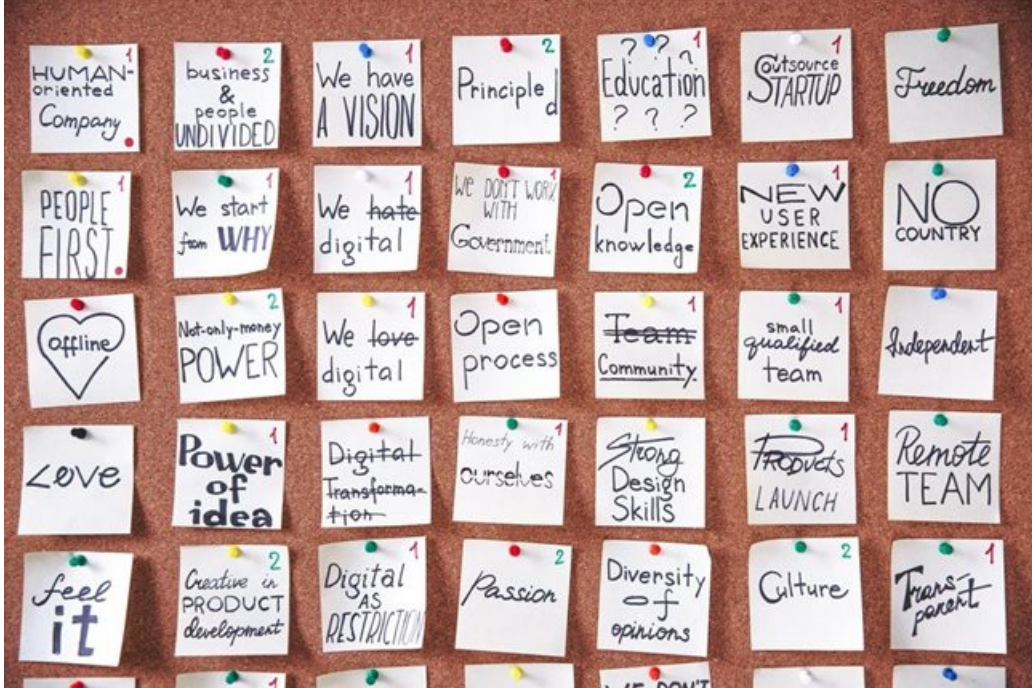 HUMAN-
oriented
Company
1
business
&
people
UNDIVIDED
2
We have
A VISION
1
Principled
2
? ? ?
Education
? ? ?
1
Outsource
STARTUP
1
Freedom
PEOPLE
FIRST
1
We start
from WHY
1
We hate
digital
1
We DON'T WORK
WITH
Government
1
Open
knowledge
2
NEW
USER
EXPERIENCE
1
NO
COUNTRY
offline
Not-only-money
POWER
2
We love
digital
1
Open
process
Team
Community
1
small
qualified
team
1
Independent
Love
Power
of
idea
1
Digital
Transforma-
tion
Honesty with
ourselves
1
Strong
Design
Skills
PRODUCTS
LAUNCH
1
Remote
TEAM
feel
it
Creative in
PRODUCT
development
2
Digital
AS
RESTRICTION
1
Passion
2
Diversity
of
opinions
Culture
2
Trans-
parent
1
1
1
WE DON'T